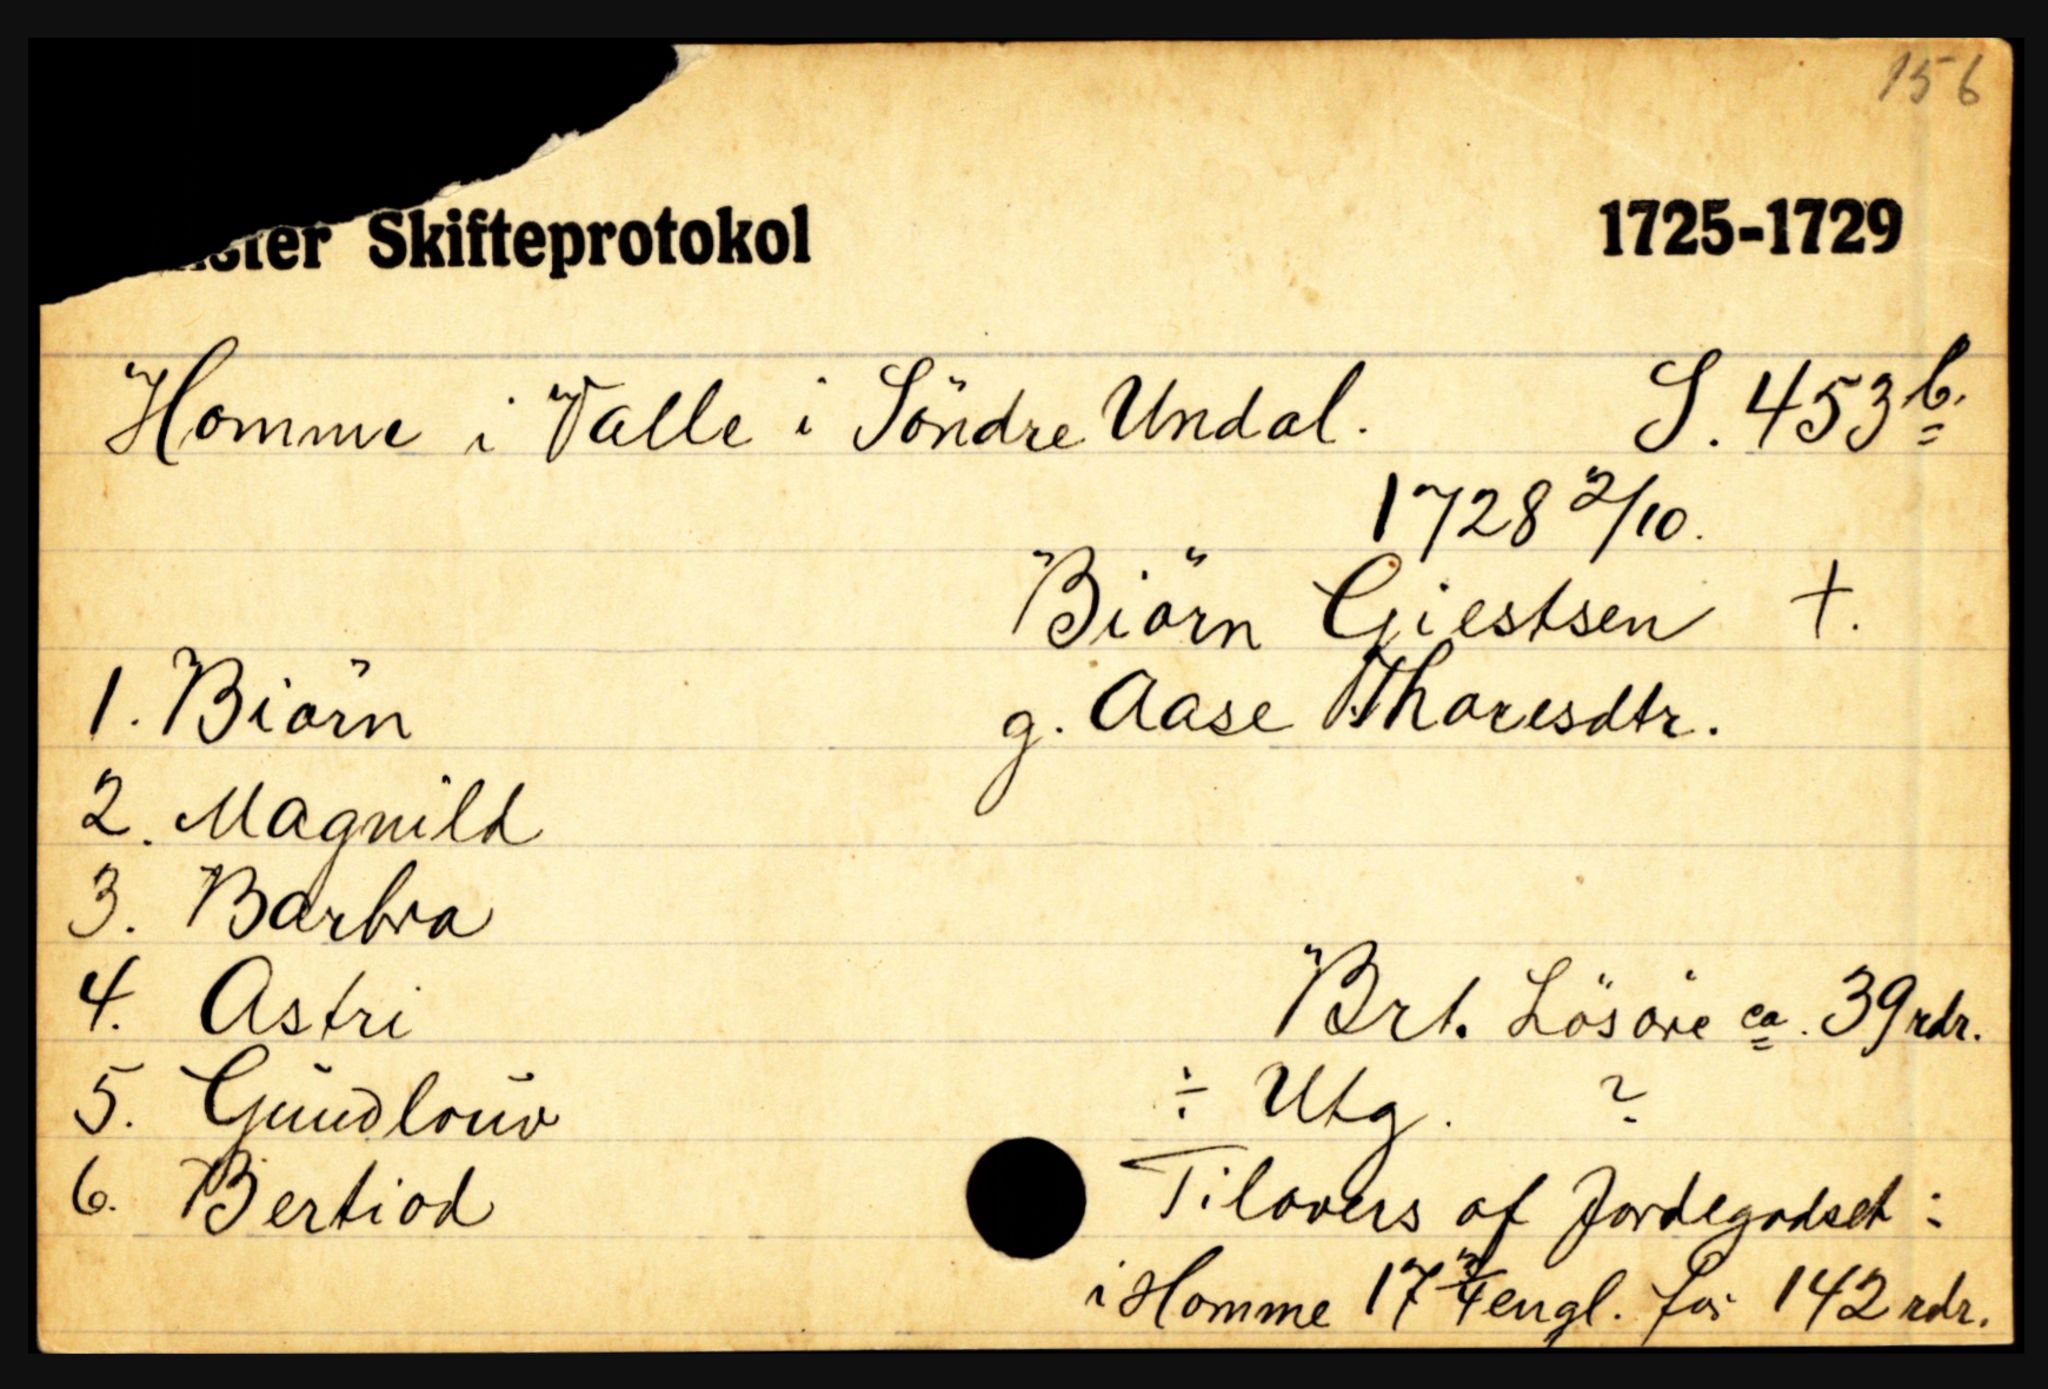 156
Skifteprotokol 1725-1729
Homme i Valle i Söndre Undal. S. 453 b.
1728 2/10.
Biörn Giestsen †.
1. Biörn g. Aase Thoresdtr.
2. Magnild
3. Barbra
4. Astri Brt. Lösöre ca. 39 rdr.
5. Gŭndloŭv ÷ Utg. ?
6. Bertiod Tilovers af Jordegodset :
i Homme 17 3/4 engl. for 142 rdr.